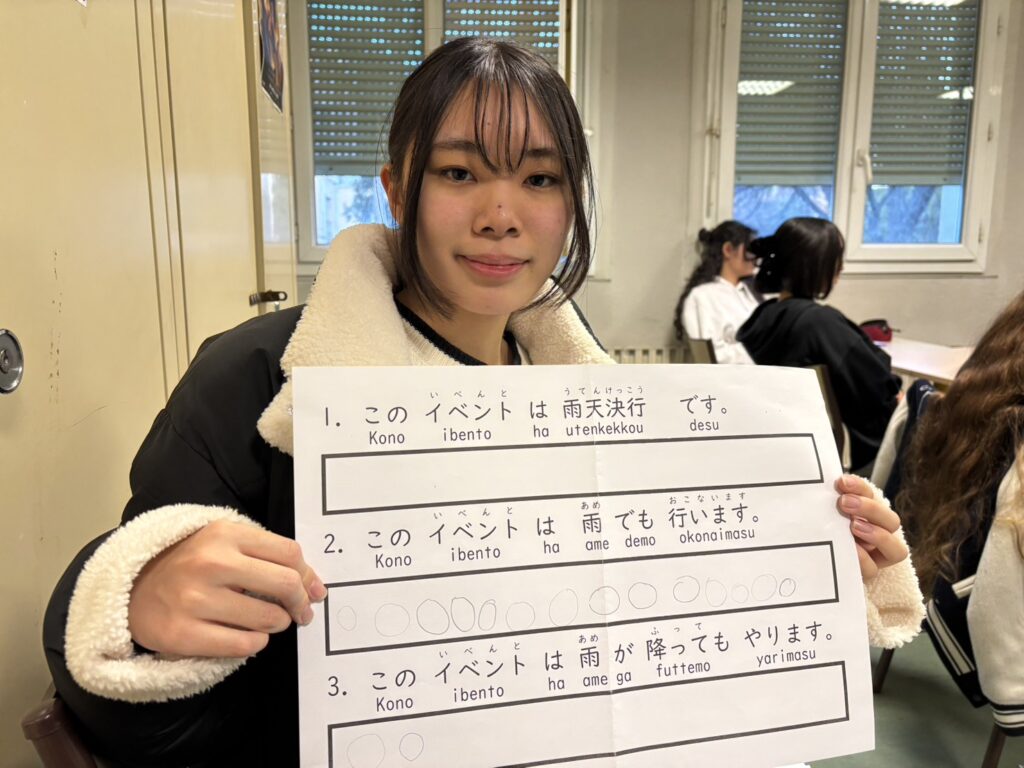 いべんと うてんけっこう
1. この イベント は 雨天決行 です。
Kono ibento ha utenkekkou desu
いべんと あめ おこないます
2. この イベント は 雨 でも 行います。
Kono ibento ha ame demo okonaimasu
いべんと あめ ふって
3. この イベント は 雨 が 降っても やります。
Kono ibento ha ame ga futtemo yarimasu